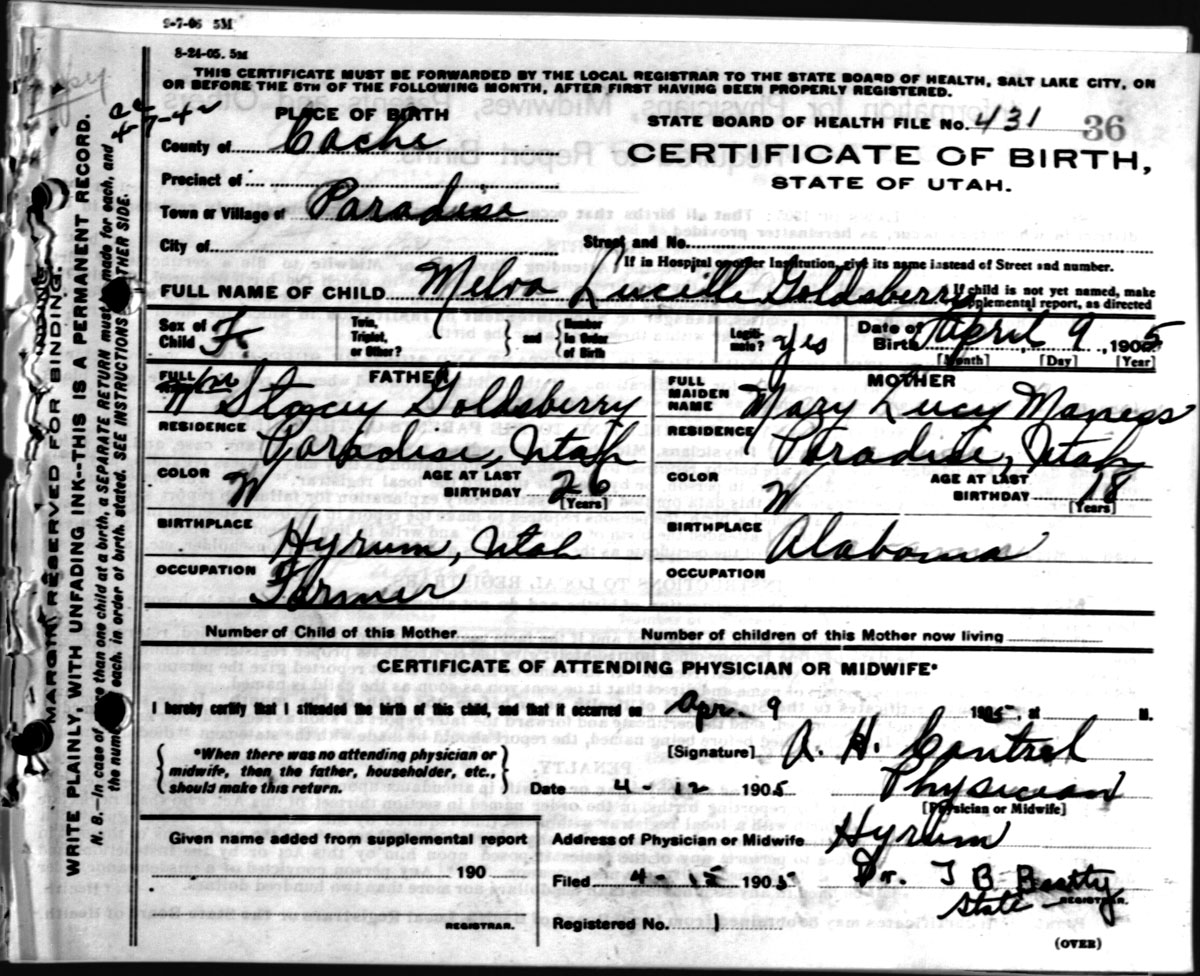 9-7-06 5M
8-24-05. 5M
THIS CERTIFICATE MUST BE FORWARDED BY THE LOCAL REGISTRAR TO THE STATE BOARD OF HEALTH, SALT LAKE CITY, ON
OR BEFORE THE 5TH OF THE FOLLOWING MONTH, AFTER FIRST HAVING BEEN PROPERLY REGISTERED.
4-7-42
PLACE OF BIRTH
STATE BOARD OF HEALTH FILE No. 431 36
County of Cache
CERTIFICATE OF BIRTH,
STATE OF UTAH.
Precinct of
Town or Village of Paradise
City of Street and No.
If in Hospital or other Institution, give its name instead of Street and number.
FULL NAME OF CHILD Melva Lucille Goldsberry
If child is not yet named, make
supplemental report, as directed
Sex of Child F.
Twin, Triplet, or Other?
and
Number in Order of Birth
Legiti- mate? Yes
Date of Birth April 9, 1905
[Month] [Day] [Year]
FULL NAME FATHER
Wm Stacey Goldsberry
FULL MAIDEN NAME MOTHER
Mary Lucy Maness
RESIDENCE Paradise, Utah
RESIDENCE Paradise, Utah
COLOR W AGE AT LAST BIRTHDAY 26 [Years]
COLOR W AGE AT LAST BIRTHDAY 18 [Years]
BIRTHPLACE Hyrum, Utah
BIRTHPLACE Alabama
OCCUPATION Farmer
OCCUPATION
Number of Child of this Mother
Number of children of this Mother now living
CERTIFICATE OF ATTENDING PHYSICIAN OR MIDWIFE*
I hereby certify that I attended the birth of this child, and that it occurred on Apr 9 1905, at M.
*When there was no attending physician or
midwife, then the father, householder, etc.,
should make this return.
[Signature] A. H.
Physician
[Physician or Midwife]
Date 4-12 1905
Given name added from supplemental report
190
REGISTRAR.
Address of Physician or Midwife Hyrum
Filed 4-15 1905 Dr. T B Beatty
State REGISTRAR.
Registered No. 1
(OVER)
MARGIN RESERVED FOR BINDING.
WRITE PLAINLY, WITH UNFADING INK--THIS IS A PERMANENT RECORD.
N. B.—In case of more than one child at a birth, a SEPARATE RETURN must be made for each, and
the number of each, in order of birth, stated. SEE INSTRUCTIONS OTHER SIDE.